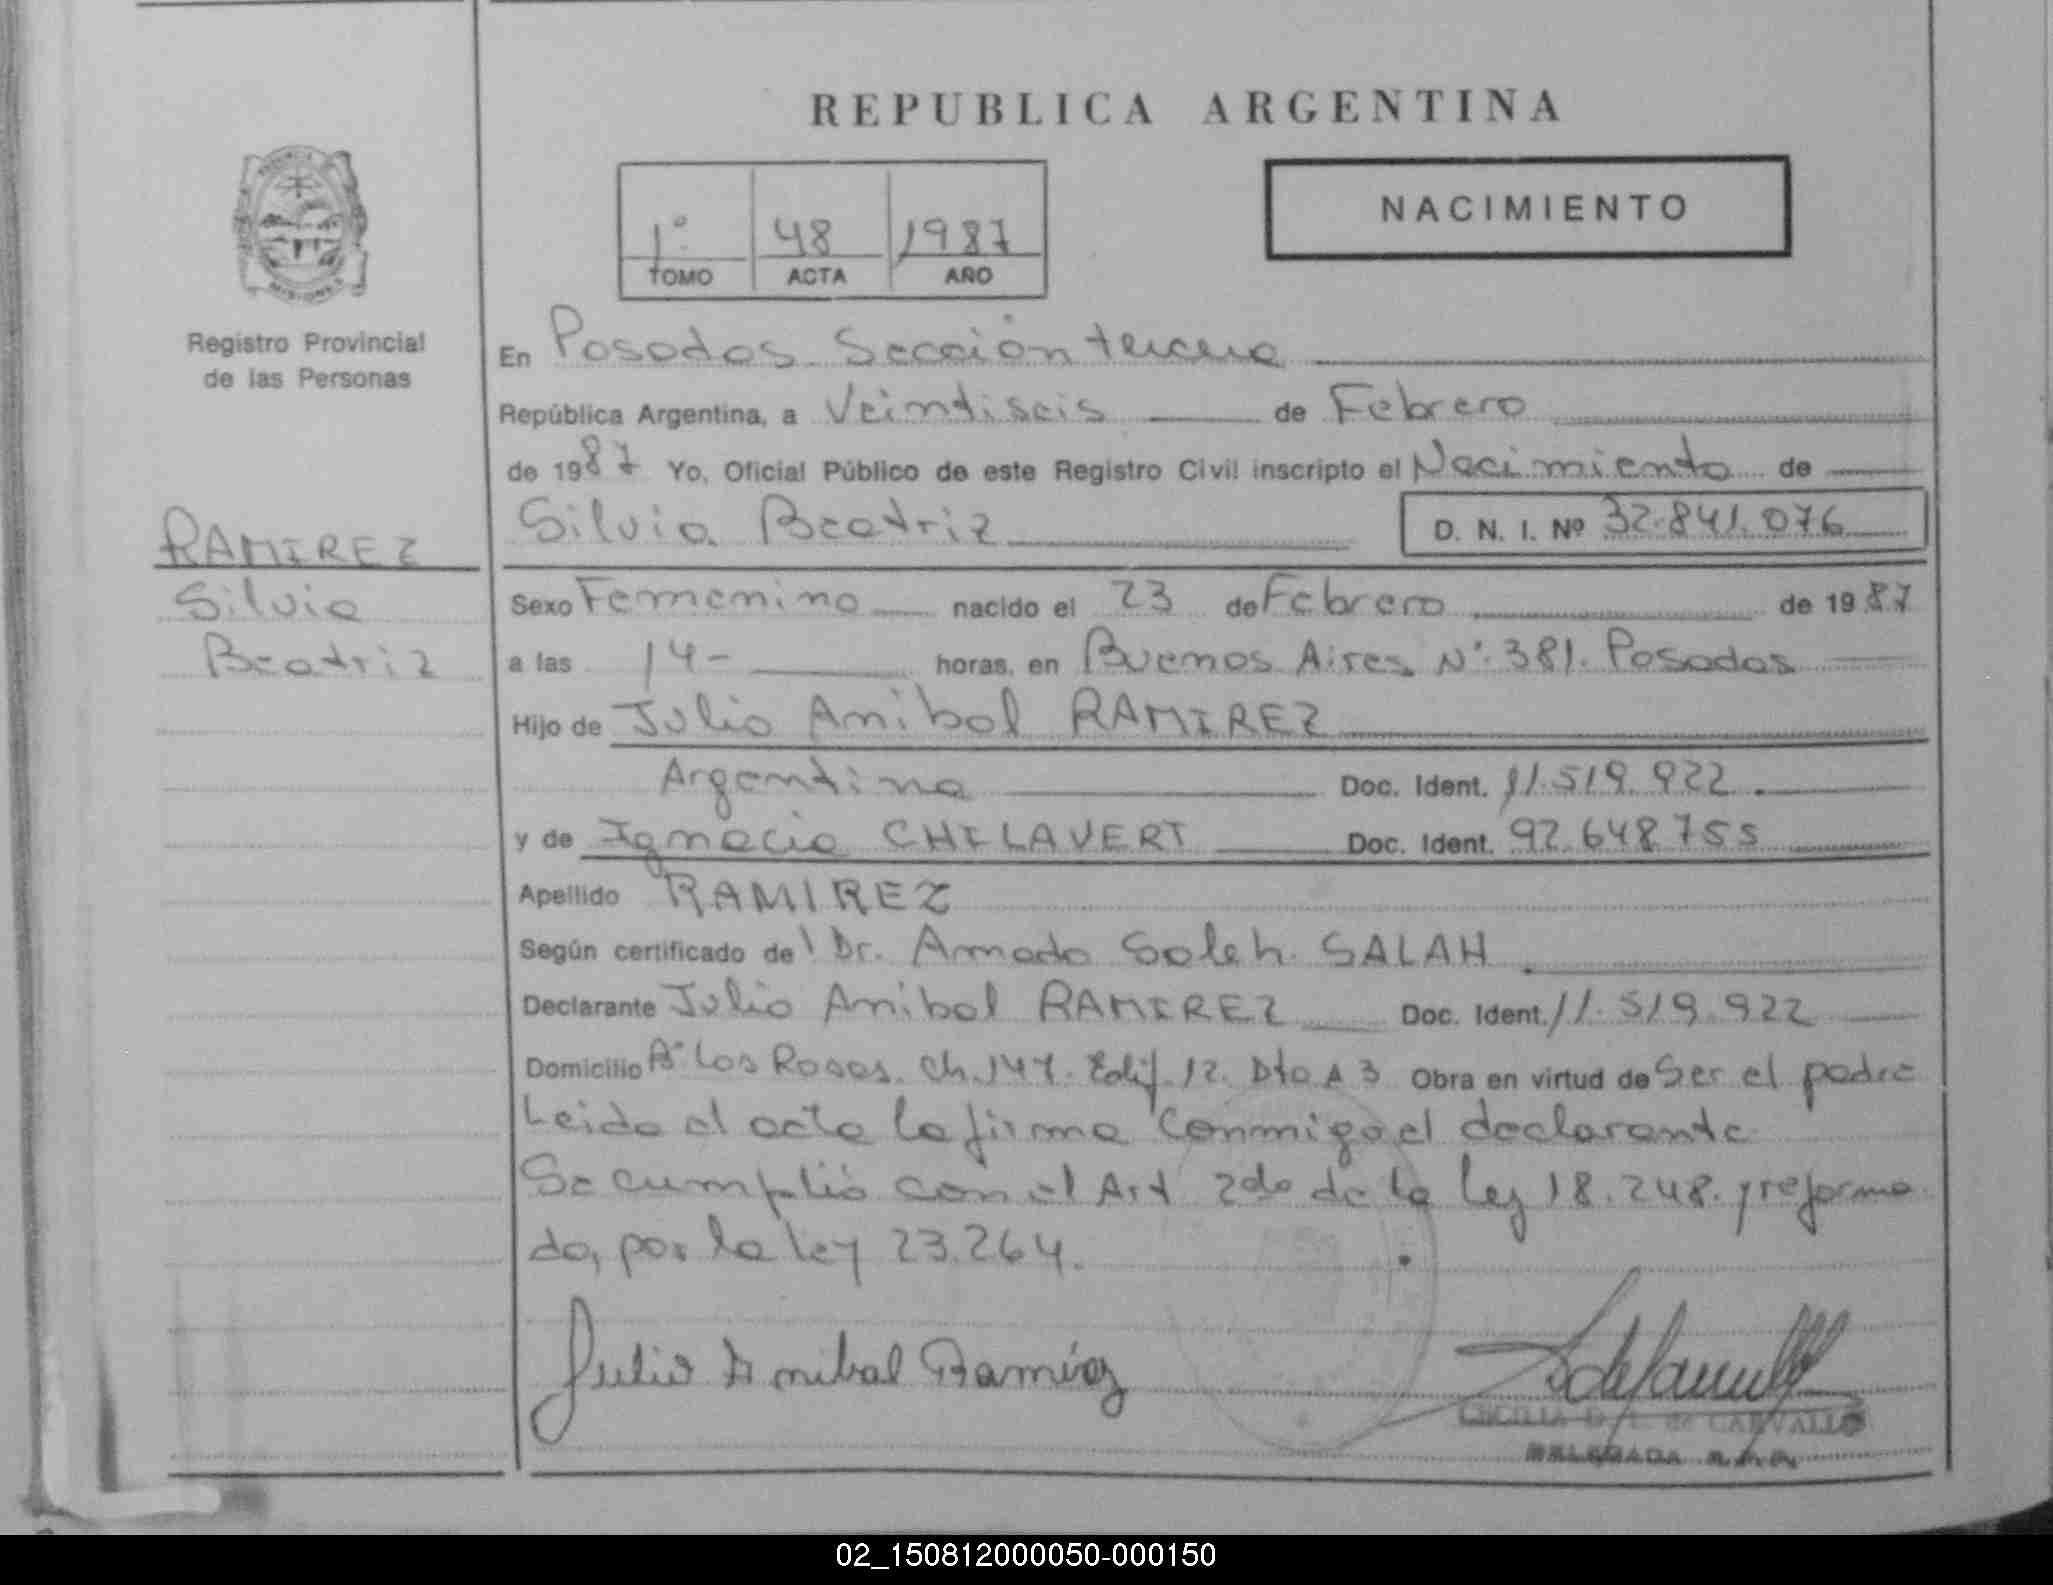 REPUBLICA ARGENTINA
NACIMIENTO
1º 48 1987
TOMO ACTA AÑO
Registro Provincial
de las Personas
En Posadas Sección tercera
República Argentina, a Veintiseis de Febrero
de 1987 Yo, Oficial Público de este Registro Civil inscripto el Nacimiento de
RAMIREZ
Silvia
Beatriz
Silvia Beatriz D. N. I. Nº 32.841.076
Sexo Femenino nacido el 23 de Febrero de 1987
a las 14- horas, en Buenos Aires Nº 381. Posadas
Hijo de Julio Anibal RAMIREZ
Argentina Doc. Ident. 11.519.922.
y de Ignacia CHILAVERT Doc. Ident. 92.648.755
Apellido RAMIREZ
Según certificado de! Dr. Amado Saleh. SALAH.
Declarante Julio Anibal RAMIREZ Doc. Ident. 11.519.922
Domicilio Bº Los Rosas. Ch. 147. Edif. 12. Dto A 3 Obra en virtud de Ser el padre
Leida el acta la firma conmigo el declarante
Se cumplió con el Art 2do de la Ley 18.248. y reforma
da, por la Ley 23.264.
Julio Anibal Ramirez
CECILIA D. L. de CARVALLO
DELEGADA
02_150812000050-000150